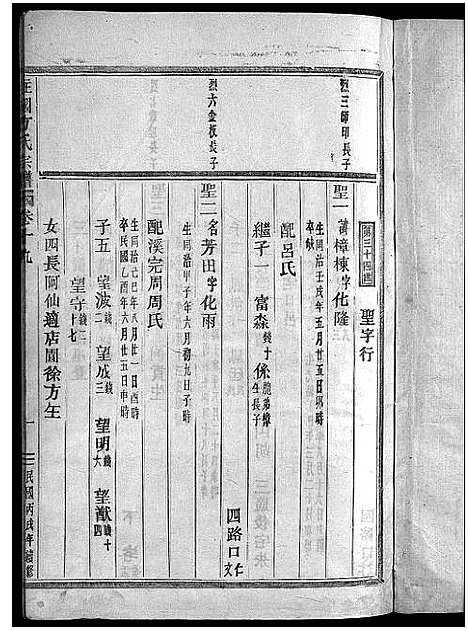 第三十四世
聖字行
烈三師印長子
聖一諱樟棟字化隆
生同治壬戌年五月廿五日
卒缺
配呂氏
繼子一 富淼錢十係胞弟樟生長子
四路口
烈六金板長子
聖二名芳田字化雨
生同治甲子年六月初九日子時
配溪完周周氏
生同治己巳年八月廿一日酉時
卒民國乙酉年六月廿五日申時
子五 望波錢二 望成錢三 望明錢六 望猷錢十四
望守錢十七
女四長阿仙適店園徐方玍
方氏宗譜
卷十九
一
民國丙戌年續修